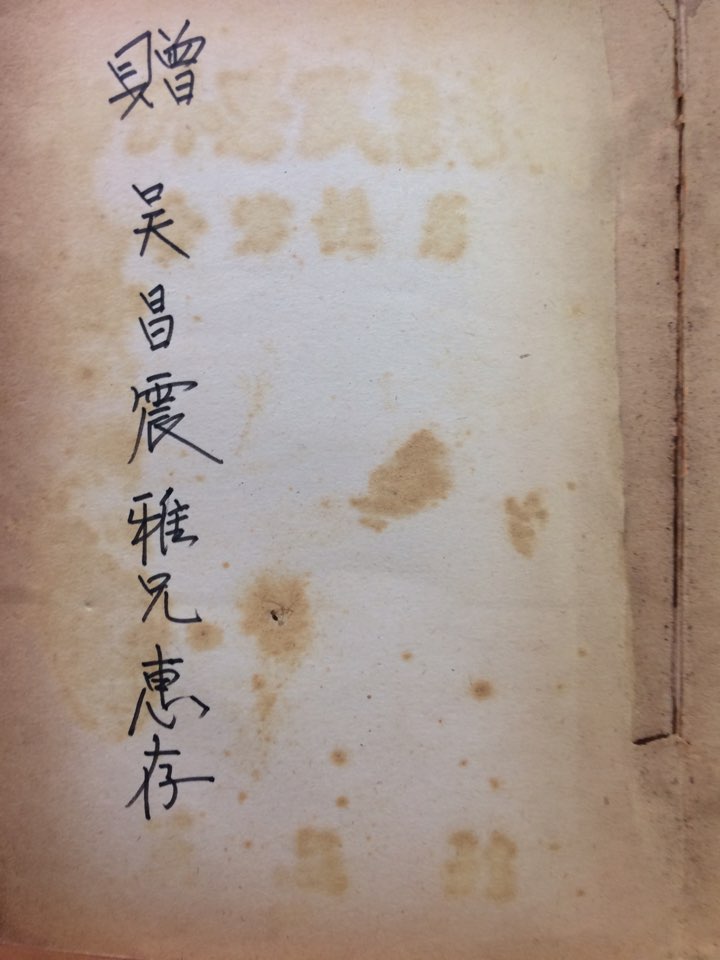 赠
吴昌震雅兄惠存